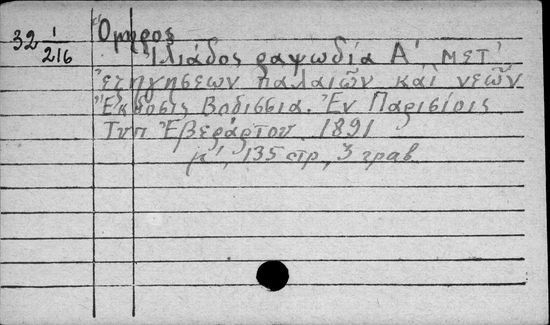 32 1/216
Ὅμηρος
Ἰλιάδος ραψωδία Α' μετ'
ἐξηγήσεων παλαιῶν καὶ νεῶν
Ἔκδοσις Βοδισσια. Ἐν Παρισίοις
Τυπ Ἐβεράρτου. 1821
μ', 135 στρ, 3 γραβ